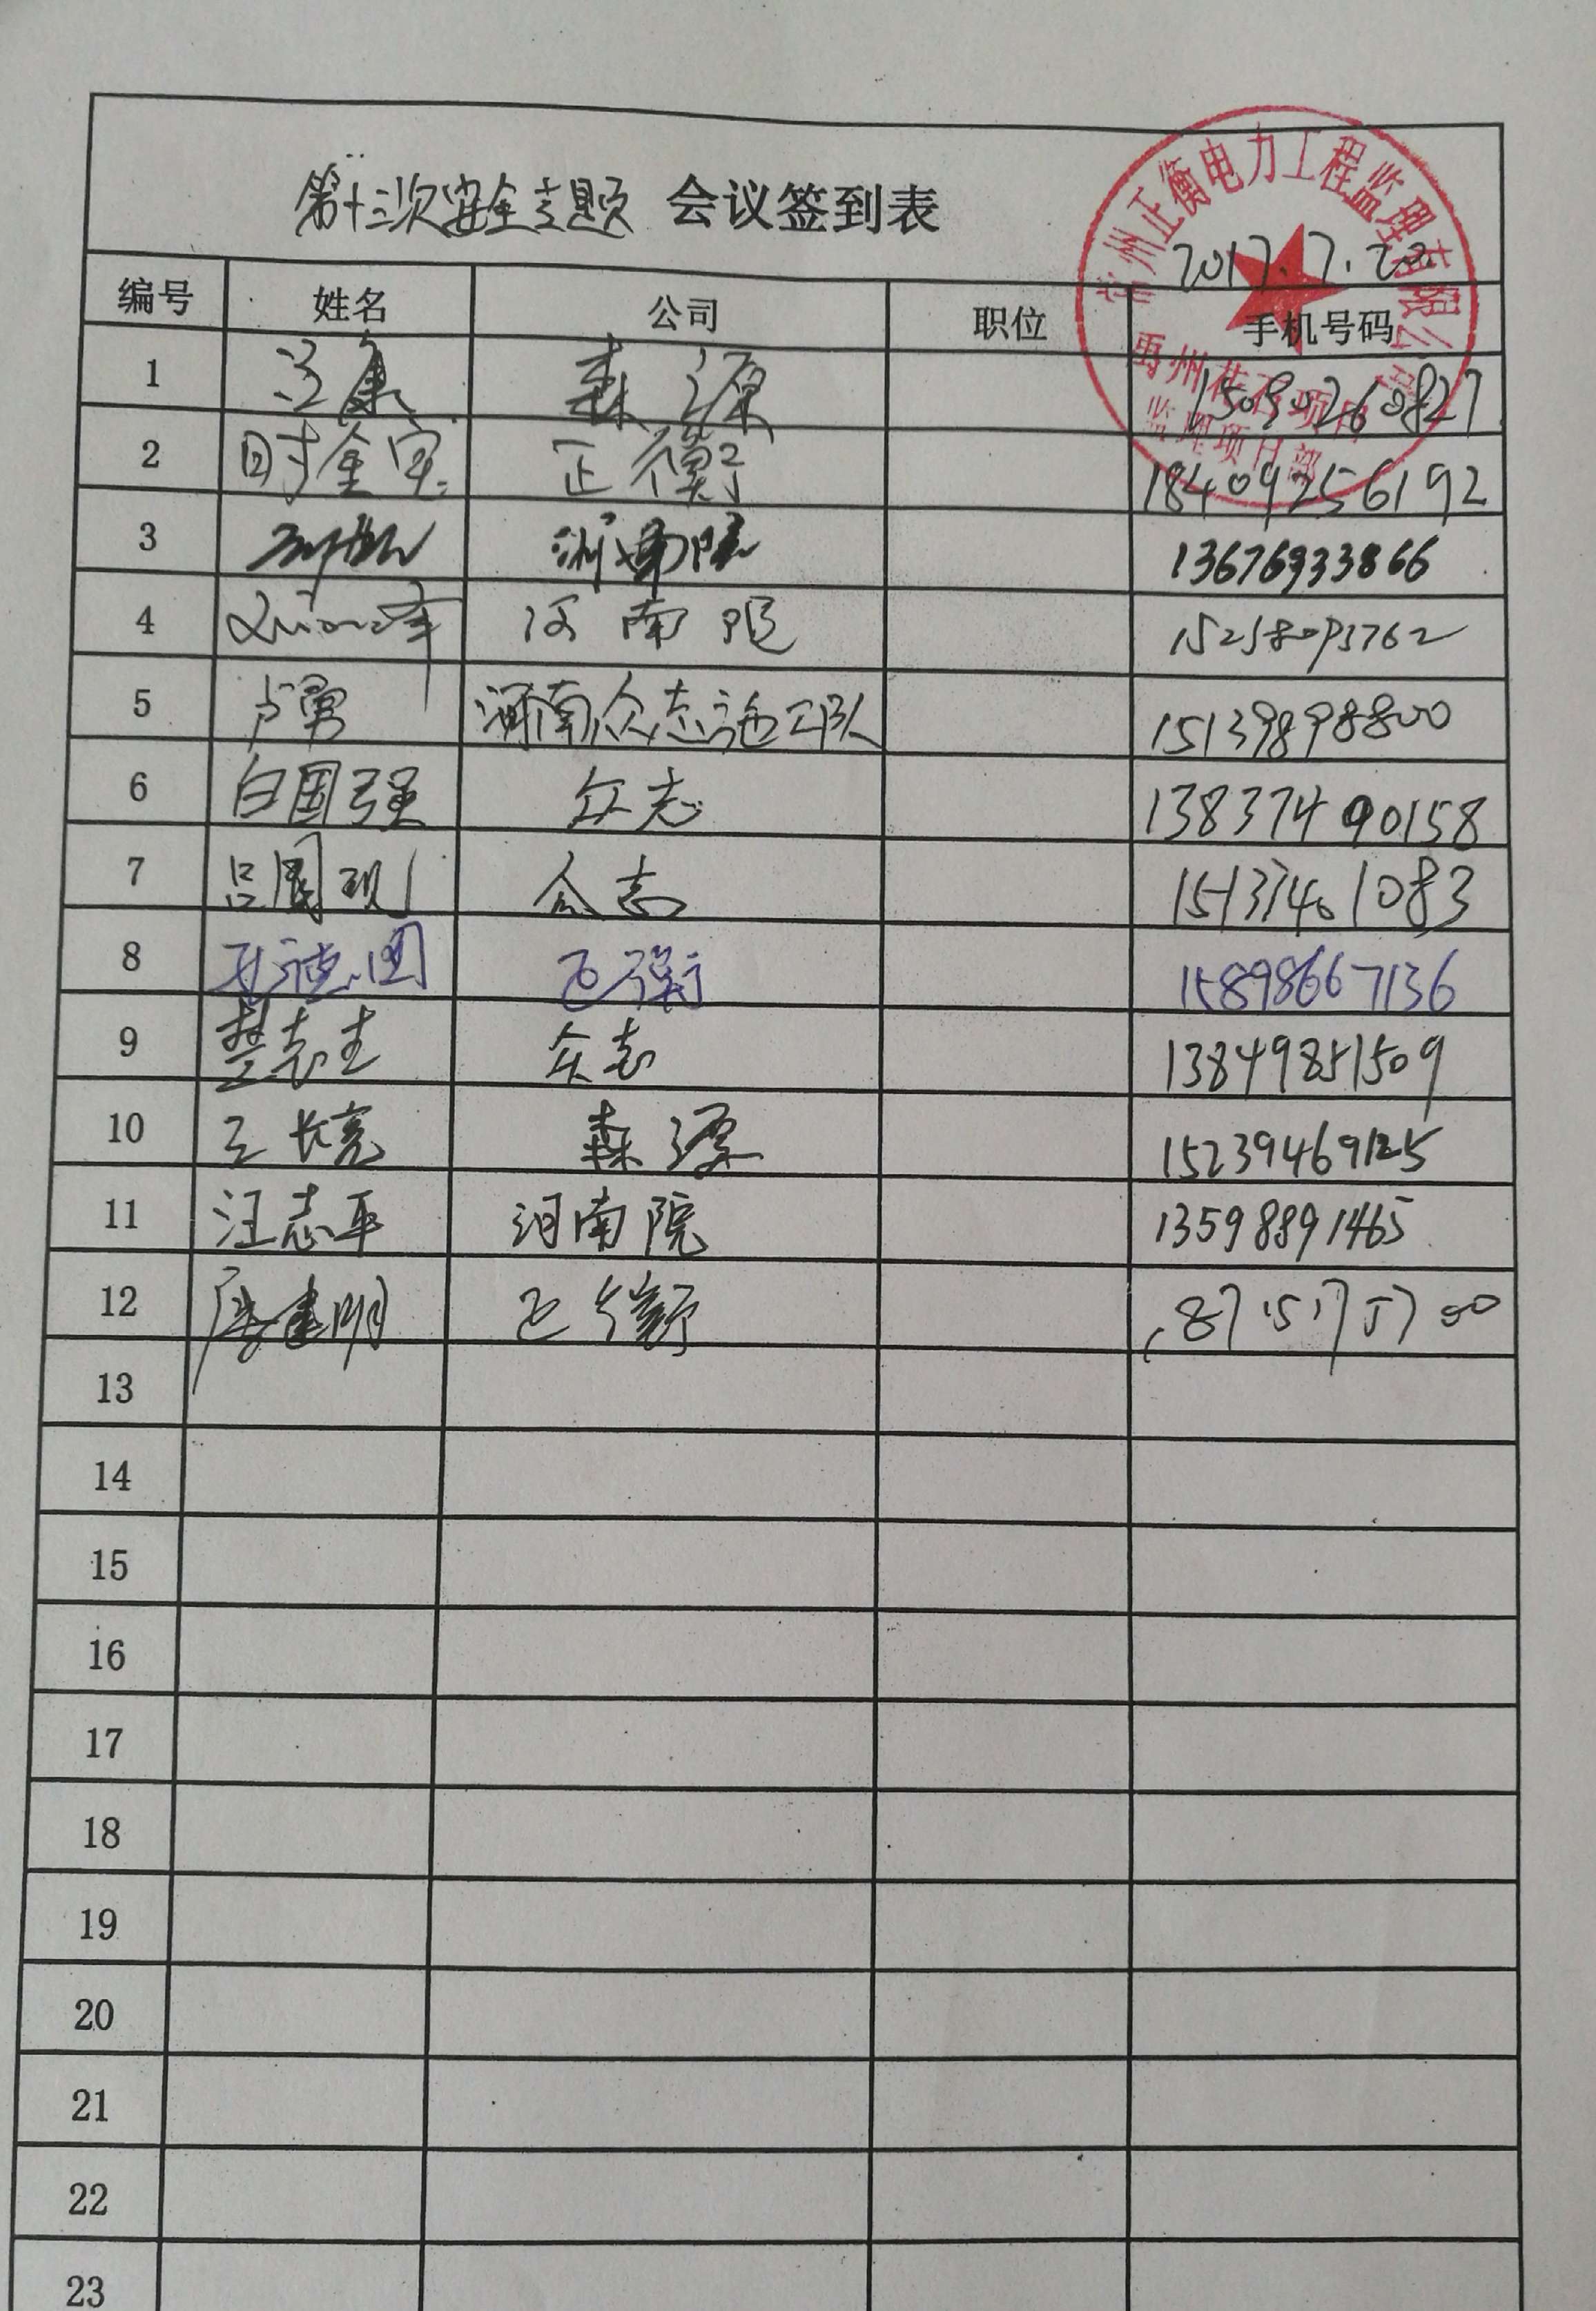 第十三次安全主题 会议签到表
正衡电力工程监理有限公
2017.7.22.
禹州 项目
监理项目部
编号 姓名 公司 职位 手机号码
1 森源 15090260827
2 时金宝 正衡 18409256192
3 河南院 13676933866
4 河南院
5 卢勇 河南众志施工队 15139898800
6 白国强 众志 13837490158
7 吕国现 众志 15137401083
8 正衡 15898667136
9 楚志 众志 13849851509
10 王长亮 森源 15239469125
11 汪志平 河南院 13598891465
12 唐建明 正衡
13
14
15
16
17
18
19
20
21
22
23